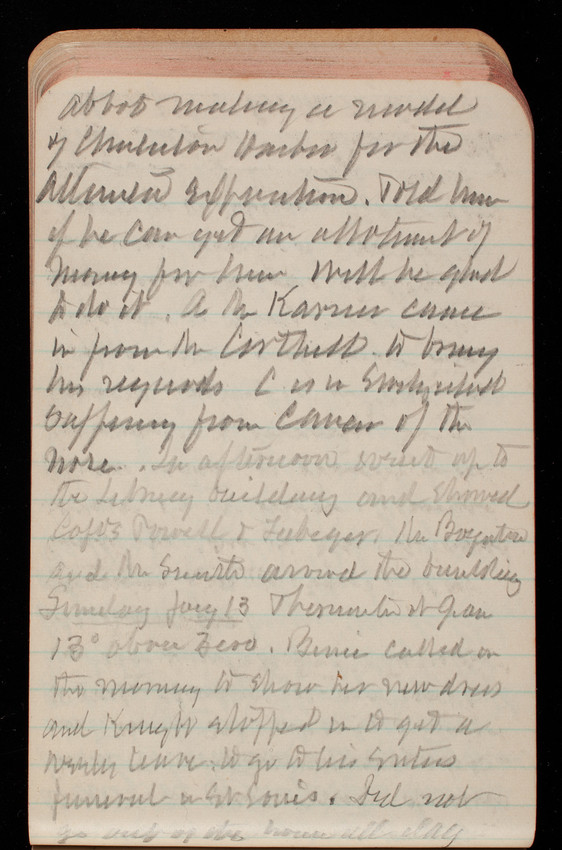 Abbot making a model
of Charleston Harbor for the
Atlanta Exposition. Told him
if he can get an allotment of
money for him will be glad
to do it. A Mr Karner came
in from Mr Corthell to bring
his regards C is in Switzerland
Suffering from Cancer of the
nose. In afternoon went up to
the Library building and showed
Capts Powell & Mr Boynton
and Mr Smith around the building
Sunday Jany 13 Thermometer at 9 am
13° above Zero. Bernie called in
the morning to show her new dress
and Knight stopped in to get a
weeks leave to go to his sisters
funeral in St Louis. Did not
go out of the house all day